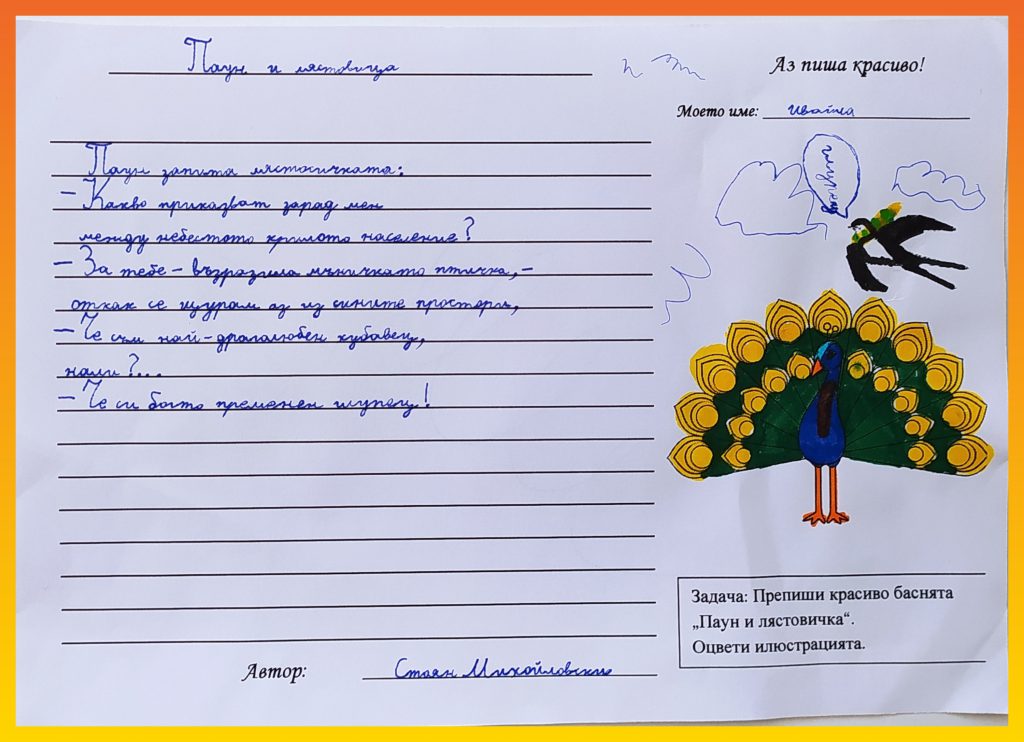 Паун и лястовица
Аз пиша красиво!
Моето име: Ивайла
Паун запита лястовичката:
– Какво приказват зарад мен
между небестото крилото население?
– За тебе – възразила мъничката птичка, –
откак се щурам аз из сините простори,
– Че съм най-драголюбен хубавец,
нали?...
– Че си богто пременен глупец!
Автор: Стоян Михайловски
Задача: Препиши красиво баснята
„Паун и лястовичка“.
Оцвети илюстрацията.